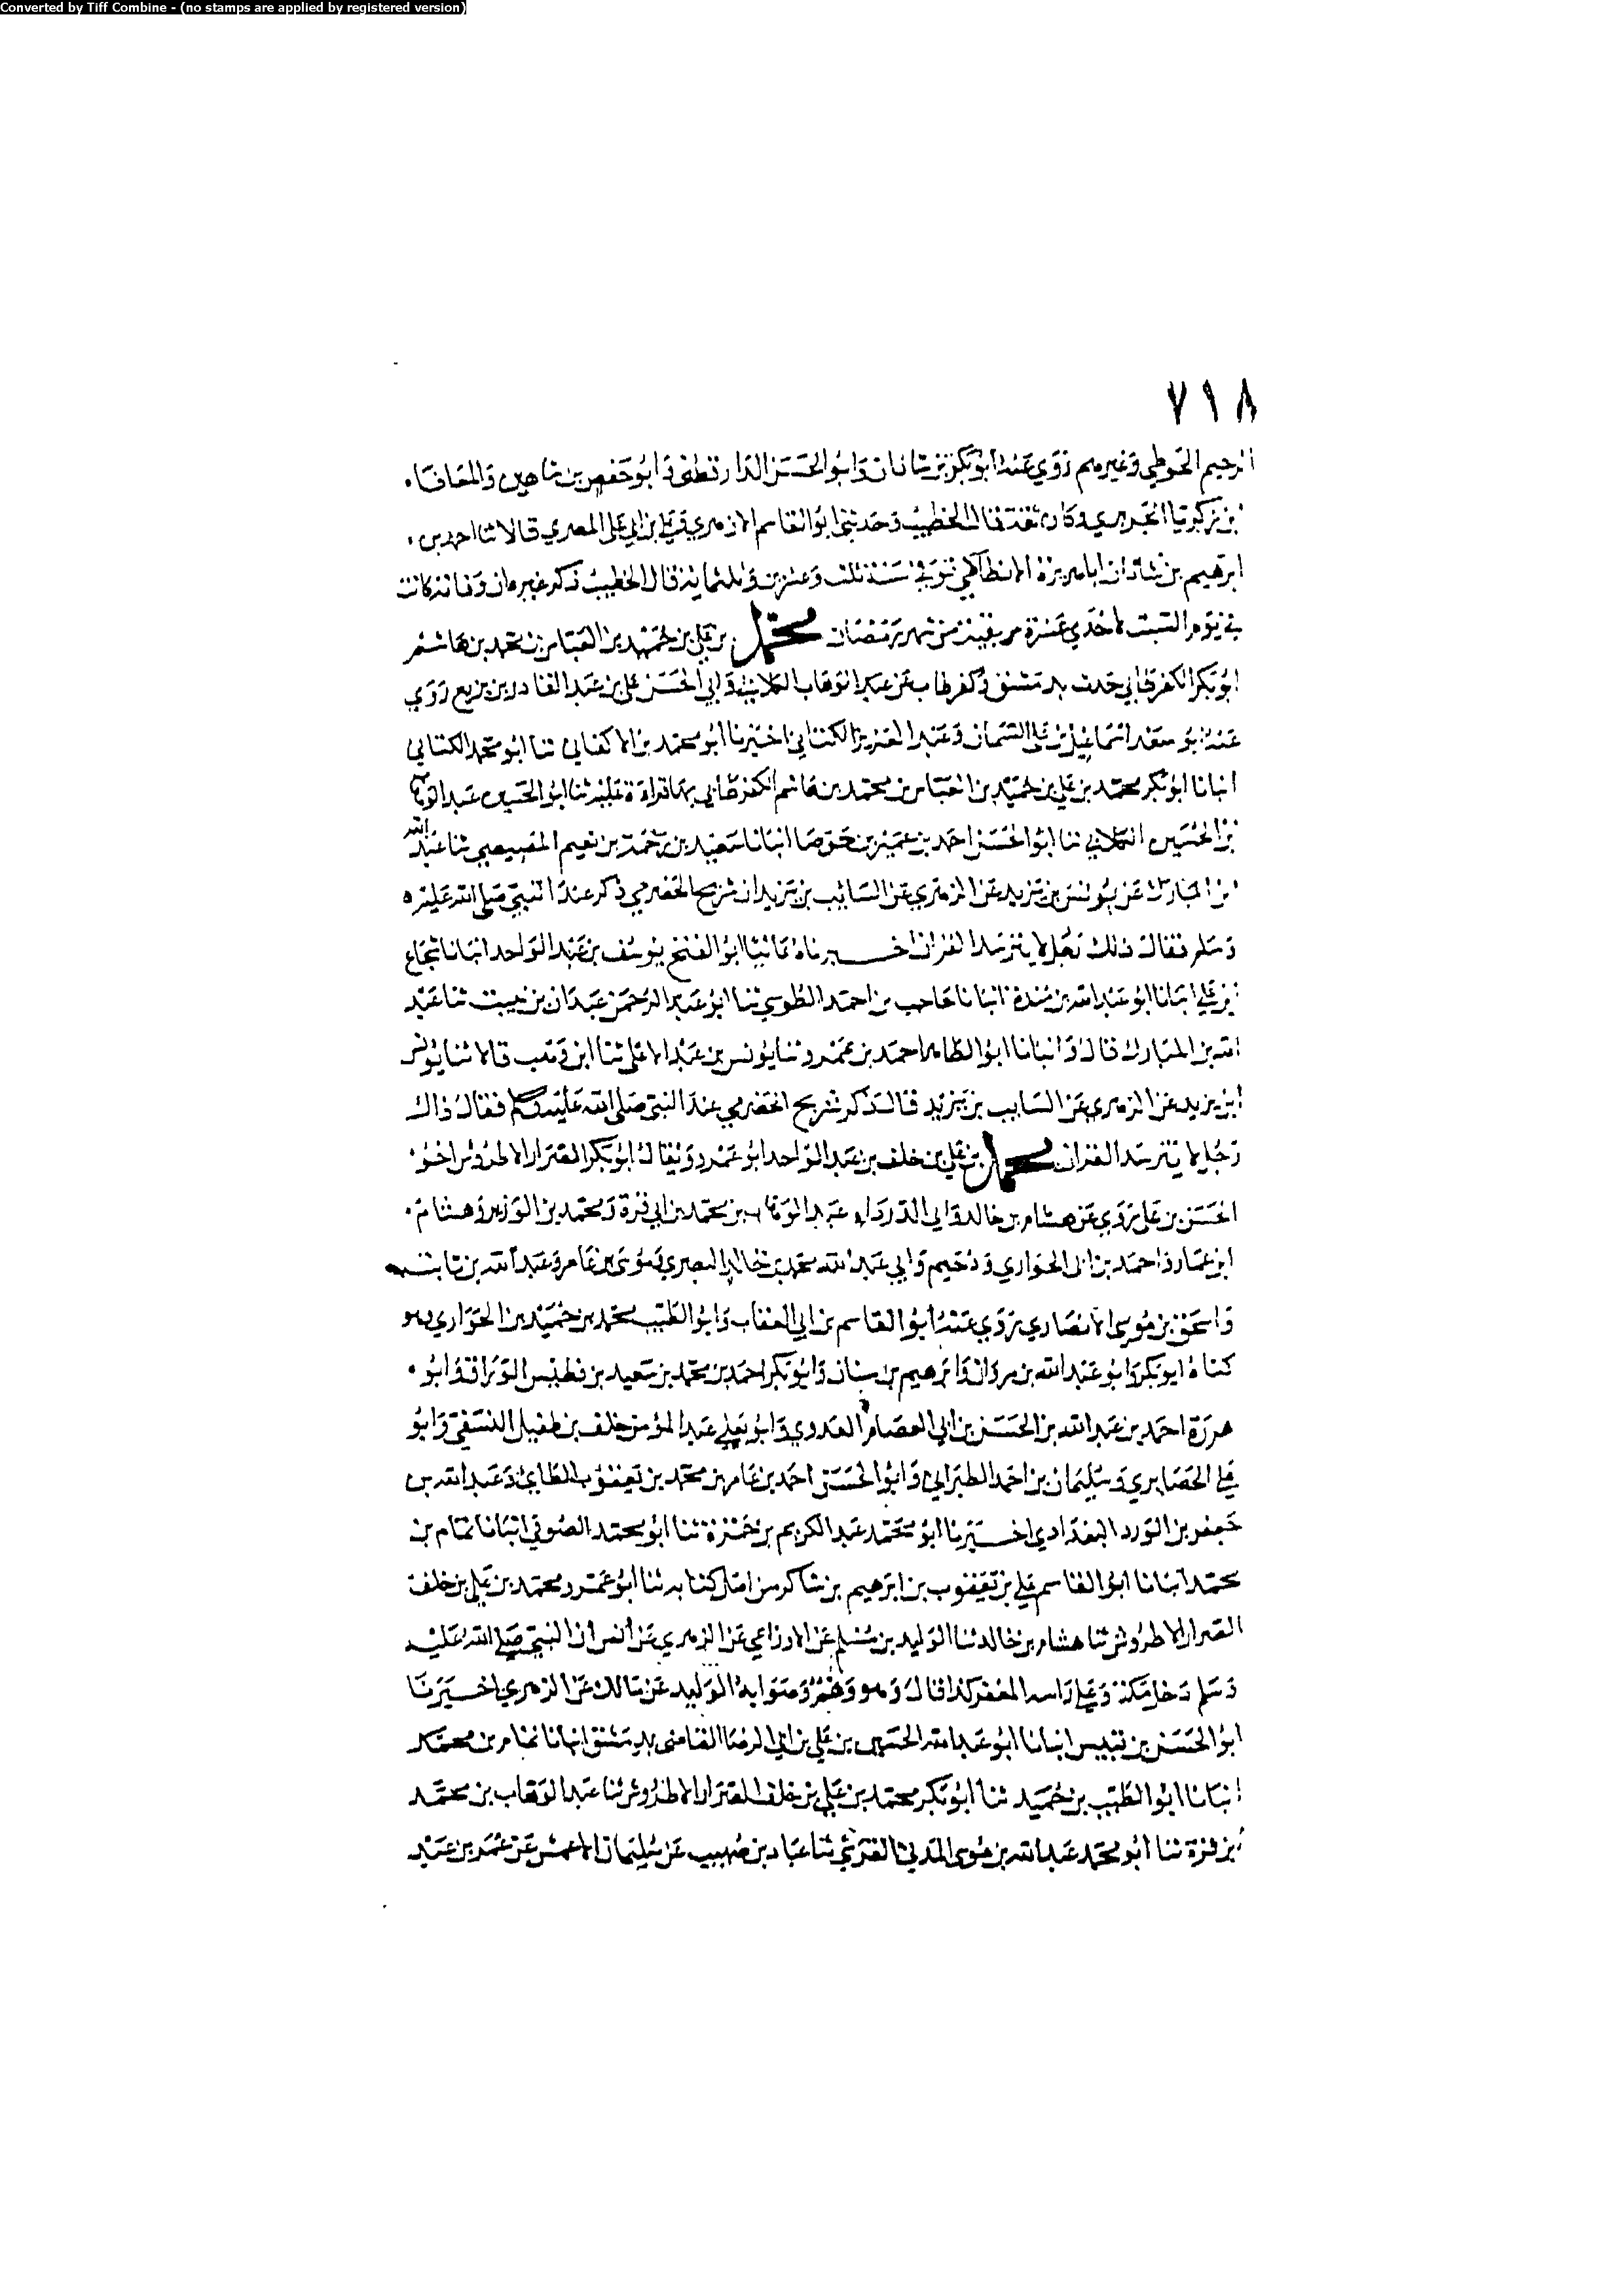 Converted by Tiff Combine - (no stamps are applied by registered version)
٧١٨
الرحيم الحوطي وغيرهم روي عنه ابو بكر بن شاذان وابو الحسن الدارقطني وابو حفص بن شاهين والمعافا
بن زكريا الجريري وكان ثقة قال الخطيب وحدثني ابو القاسم الازهري وعلي بن ابي علي المصري قالا ثنا احمد بن
ابرهيم بن شاذان ابا هريرة الانطاكي توفي سنة ثلث وعشرين وثلثماية قال الخطيب ذكر غيره ان وفاته كانت
في يوم السبت لاحدي عشرة من بقيت من شهر رمضان محمد بن علي بن حميد بن العباس بن محمد بن هاشم
ابو بكر الكفرطابي حدث بدمشق وكفرطاب عن عبد الوهاب الكلابي وابي الحسن علي بن عبد القادر بن بزيع روي
عنه ابو سعد اسماعيل بن علي السمان وعبد العزيز الكتاني اخبرنا ابو محمد بن الاكفاني ثنا ابو محمد الكتاني
انبانا ابو بكر محمد بن علي بن حميد بن العباس بن محمد بن هاشم الكفرطابي بها قراءة عليه ثنا ابو الحسين عبد الوهاب
بن الحسين الكلابي ثنا ابو الحسن احمد بن عمير بن جوصا انبانا سعيد بن رحمة بن نعيم المصيصي ثنا عبد الله
بن المبارك عن يونس بن يزيد عن الزهري عن السايب بن يزيد ان شريح الحضرمي ذكر عند النبي صلى الله عليه
وسلم فقال ذلك رجل لا يتوسد القران اخبرناه ثانيا ابو الفتح يوسف بن عبد الواحد انبانا شجاع
بن علي انبانا ابو عبد الله بن مندة انبانا حاجب بن احمد الطوسي ثنا ابو عبد الرحمن عبدان بن بيبت ثنا عبد
الله بن المبارك قال وانبانا ابو الطاهر احمد بن عمرو ثنا يونس بن عبد الاعلى ثنا ابن وهب قالا ثنا يونس
ابن يزيد عن الزهري عن السايب بن يزيد قال ذكر شريح الحضرمي عند النبي صلى الله عليه وسلم فقال ذاك
رجل لا يتوسد القران محمد بن علي بن خلف بن عبد الواحد ابو عمرو ويقال ابو بكر الصرار الاطروش اخو
الحسن بن علي روي عن هشام بن خالد وابي الدرداء عبد الوهاب بن محمد بن ابي قرة ومحمد بن الوزير وهشام
ابن عمار واحمد بن ابي الحواري ودحيم وابي عبد الله محمد بن خالد البصري وموسى بن عامر وعبد الله بن ثابت
واسحق بن موسى الانصاري روي عنه ابو القاسم بن ابي العقاب وابو الطيب محمد بن حميد بن الحواري وهو
كناه ابو بكر وابو عبد الله بن مروان وابرهيم بن سنان وابو بكر احمد بن محمد بن سعيد بن فطيس الوراق وابو
هريرة احمد بن عبد الله بن الحسن بن ابي العصام العدوي وابو يعلي عبد المؤمن خلف بن طفيل النسفي وابو
علي الحصايري وسليمان بن احمد الطبراني وابو الحسن احمد بن عامر بن محمد بن يعقوب الطائي وعبد الله بن
جعفر بن الورد البغدادي اخبرنا ابو محمد عبد الكريم بن حمزة ثنا ابو محمد الصوفي انبانا تمام بن
محمد انبانا ابو القاسم علي بن يعقوب بن ابرهيم بن شاكر من اصل كتابه ثنا ابو عمرو محمد بن علي بن خلف
الصرار الاطروش ثنا هشام بن خالد ثنا الوليد بن مسلم عن الاوزاعي عن الزهري عن أنس ان النبي صلى الله عليه
وسلم دخل مكة وعلى راسه المغفر كذا قال وهو وهم وصوابه الوليد عن مالك عن الزهري اخبرنا
ابو الحسن بن قبيس انبانا ابو عبد الله الحسين بن علي بن ابي الرضا القاضي بدمشق انبانا تمام بن محمد
انبانا ابو الطيب بن حميد ثنا ابو بكر محمد بن علي بن خلف الصرار الاطروش ثنا عبد الوهاب بن محمد
بن قرة ثنا ابو محمد عبد الله بن موسى المدني القرشي ثنا عباد بن صهيب عن سليمان الاعمش عن عمر بن عبيد